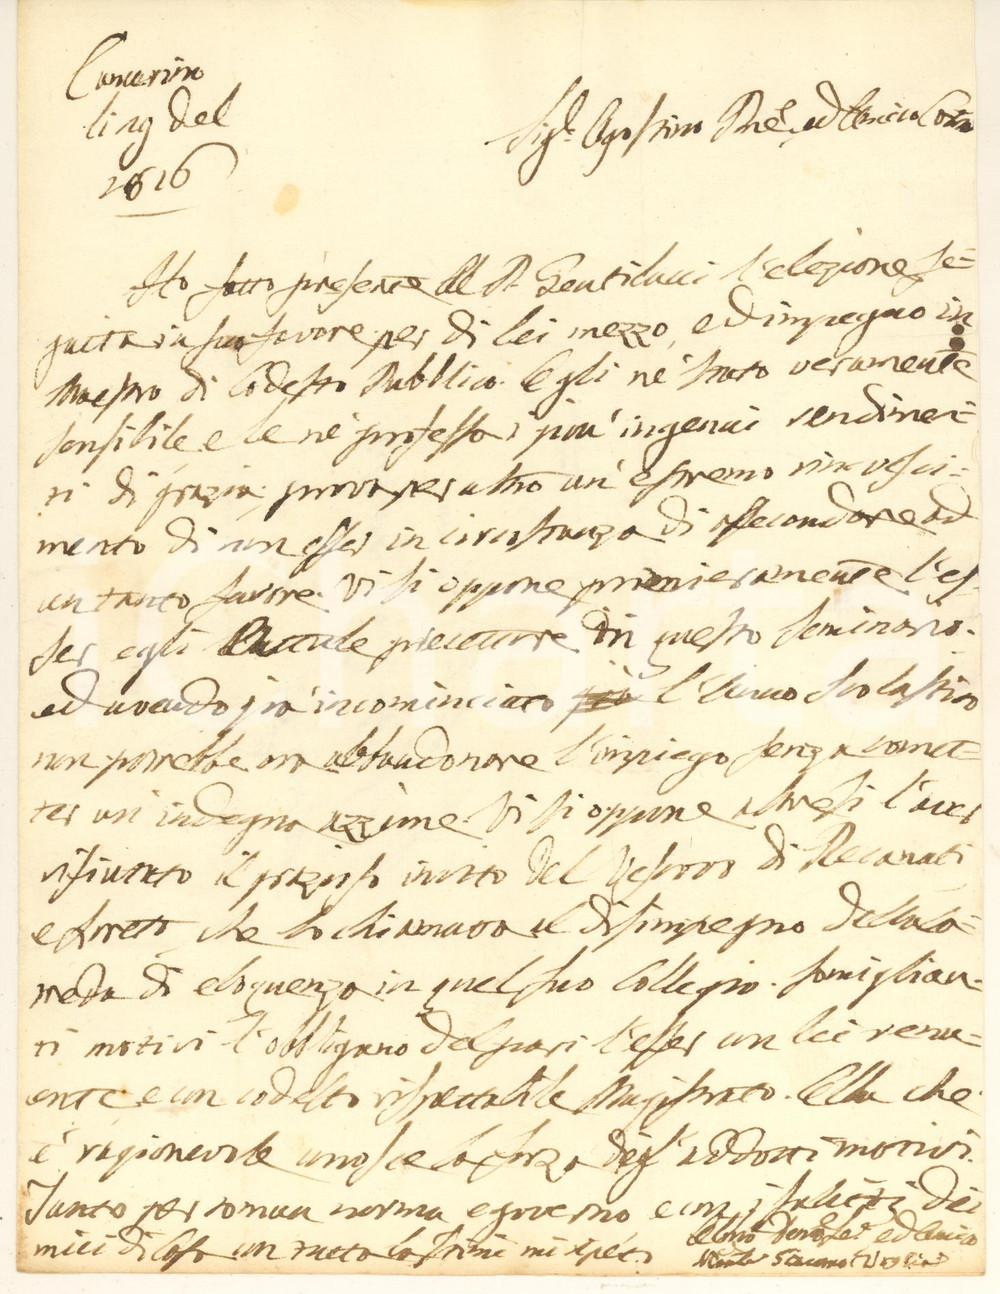 Camerino
li 19 del
1816
Sig.r Agostino Pne. ed Amico
Ho fatto presente al P. Gentilucci l'elezione se=
guita in suo favore per di lei mezzo, ed impegno in
Maestro di codesto Pubblico. Egli n'è stato veramente
sensibile e le ne professa i più ingenui rendimen=
ti di grazia; prova per altro un'estremo rincresci=
mento di non esser in circostanza di assecondare ad
un tanto favore. Vi si oppone primieramente l'es=
ser egli attuale precettore in questo Seminario.
ed avendo già incominciato l'anno scolastico
non potrebbe ora abbandonare l'impiego senza comet=
ter un'indegna azzione. Vi si oppone altresì l'aver
rifiutato il grazioso invito del Vescovo di Recanati
e Loreto, che lo chiamava al disimpegno della Ca=
treda di eloquenza in quel suo Collegio. Somiglian=
ti motivi l'obbligano del pari l'esser con lei renu=
ente e con codesto rispettabile Magistrato. Ella che
è ragionevole conosce la forza degl'addotti motivi.
Tanto per comun norma e governo e con i saluti dei
miei di casa con tutta la stima mi ripeto
Devo Ser ed Amico
Giacomo